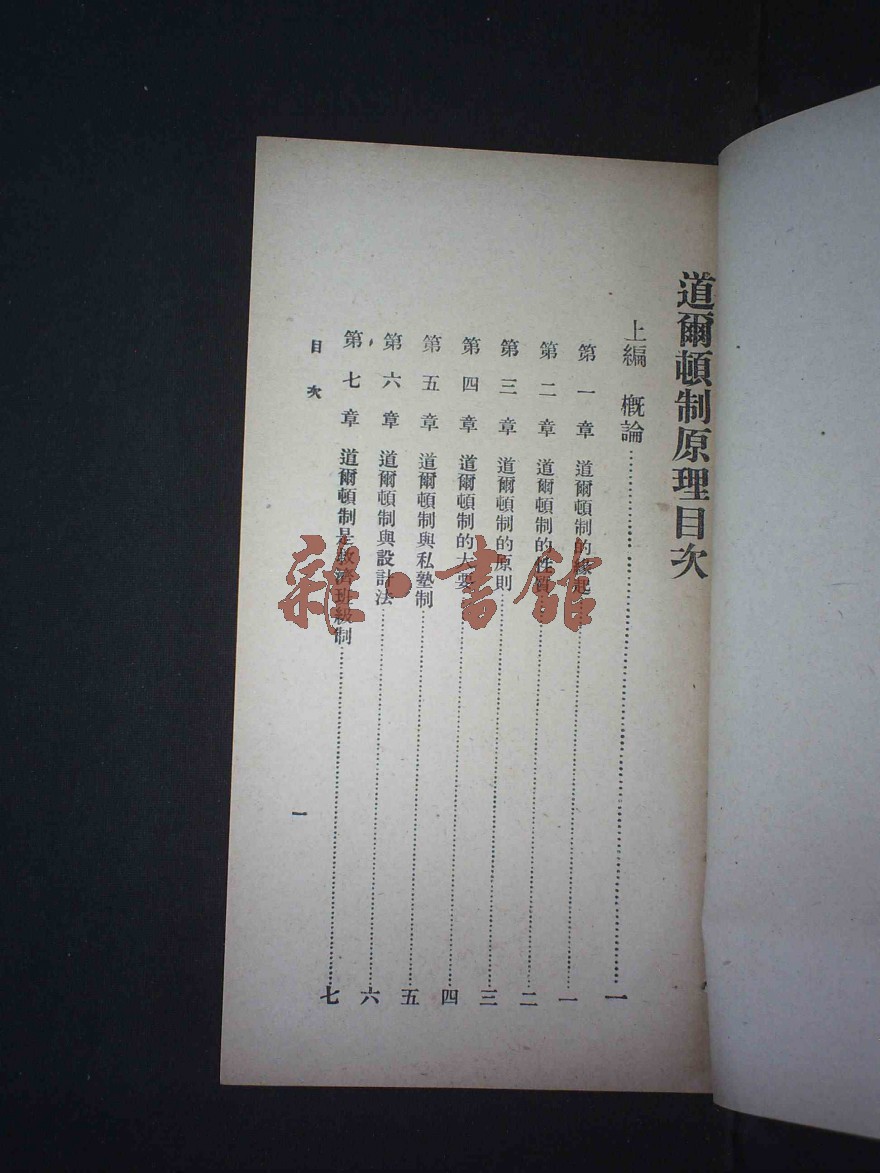 道爾頓制原理目次
上編 概論……一
第一章 道爾頓制的緣起……一
第二章 道爾頓制的性質……二
第三章 道爾頓制的原則……三
第四章 道爾頓制的大要……四
第五章 道爾頓制與私塾制……五
第六章 道爾頓制與設計法……六
第七章 道爾頓制是救濟班級制……七
目次
一
雜·書館